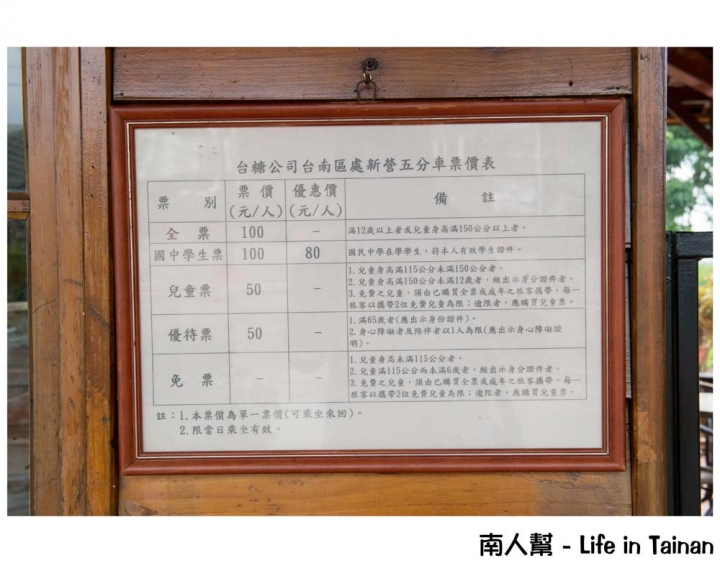 台糖公司台南區處新營五分車票價表
票 別 票價 (元/人) 優惠價 (元/人) 備 註
全 票 100 – 滿12歲以上者或兒童身高滿150公分以上者。
國中學生票 100 80 國民中學在學學生,持本人有效學生證件。
兒童票 50 –
1.兒童身高滿115公分未滿150公分者。
2.兒童身高滿150公分未滿12歲者,經出示身分證件者。
3.免費之兒童,須由已購買全票或成年之旅客攜帶,每一
旅客以攜帶2位免費兒童為限;逾限者,應購買兒童票。
優待票 50 –
1.滿65歲者(應出示身份證件)。
2.身心障礙者及陪伴者以1人為限(應出示身心障礙證
明)。
免 票 – –
1.兒童身高未滿115公分者。
2.兒童滿115公分而未滿6歲者,經出示身分證件者。
3.免費之兒童,須由已購買全票或成年之旅客攜帶,每一
旅客以攜帶2位免費兒童為限;逾限者,應購買兒童票。
註:1.本票價為單一票價(可乘坐來回)。
2.限當日乘坐有效。
南人幫 - Life in Tainan